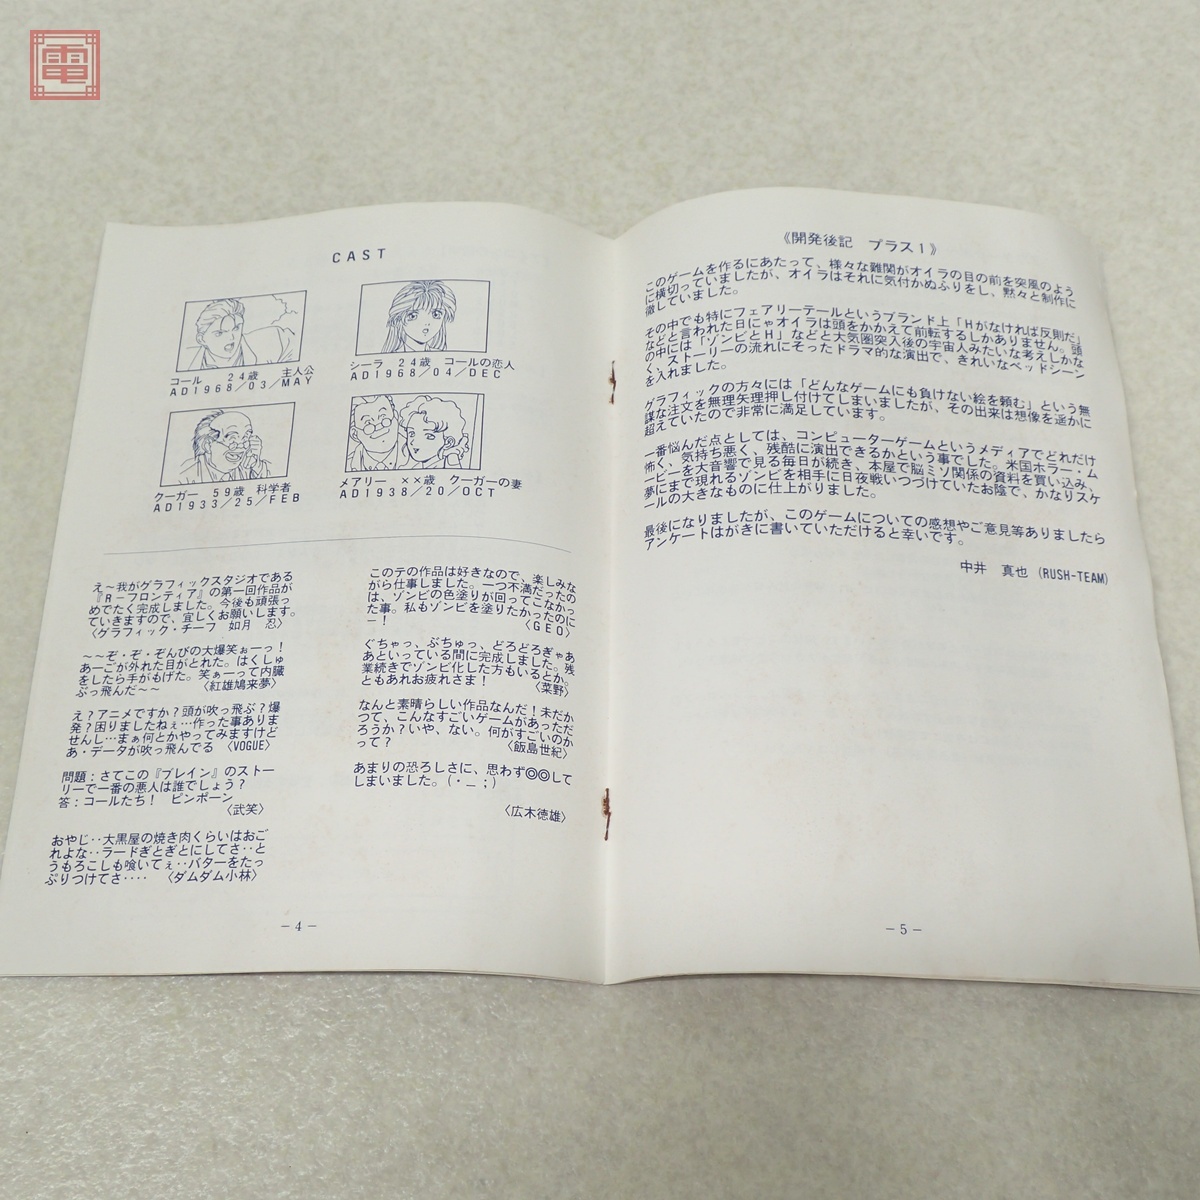 電
CAST
コール　24歳　主人公
AD1968/03/MAY
シーラ　24歳　コールの恋人
AD1968/04/DEC
クーガー　59歳　科学者
AD1933/25/FEB
メアリー　××歳　クーガーの妻
AD1938/20/OCT
え～我がグラフィックスタジオである
『R-フロンティア』の第一回作品が
めでたく完成しました。今後も頑張っ
ていきますので、宜しくお願いします。
〈グラフィック・チーフ　如月　忍〉
～～ぞ・ぞ・ぞんびの大爆笑ぉーっ！
あーごが外れた目がとれた。はくしゅ
をしたら手がもげた。笑ぁーって内臓
ぶっ飛んだ～～　〈紅雄鳩来夢〉
え？アニメですか？頭が吹っ飛ぶ？爆
発？困りましたねぇ…作った事ありま
せんし…まぁ何とかやってみますけど
あ・データが吹っ飛んでる　〈VOGUE〉
問題：さてこの『ブレイン』のストー
リーで一番の悪人は誰でしょう？
答：コールたち！　ピンポーン
〈武笑〉
おやじ‥大黒屋の焼き肉くらいはおご
れよな‥ラードぎとぎとにしてさ‥と
うもろこしも喰いてぇ‥バターをたっ
ぷりつけてさ‥‥　〈ダムダム小林〉
このテの作品は好きなので、楽しみな
がら仕事しました。一つ不満だったの
は、ゾンビの色塗りが回ってこなかっ
た事。私もゾンビを塗りたかったのに
ー！　〈GEO〉
ぐちゃっ、ぶちゅっ、どろどろぎゃあ
あといっている間に完成しました。残
業続きでゾンビ化した方もいるとか。
ともあれお疲れさま！　〈菜野〉
なんと素晴らしい作品なんだ！未だか
つて、こんなすごいゲームがあっただ
ろうか？いや、ない。何がすごいのか
って？　〈飯島世紀〉
あまりの恐ろしさに、思わず◎◎して
しまいました。(・＿；)
〈広木徳雄〉
－4－
《開発後記　プラス1》
このゲームを作るにあたって、様々な難関がオイラの目の前を突風のよう
に横切っていましたが、オイラはそれに気付かぬふりをし、黙々と制作に
徹していました。
その中でも特にフェアリーテールというブランド上「Hがなければ反則だ」
などと言われた日にゃオイラは頭をかかえて前転するしかありません。頭
の中には「ゾンビとH」などと大気圏突入後の宇宙人みたいな考えしかな
く、ストーリーの流れにそったドラマ的な演出で、きれいなベッドシーン
を入れました。
グラフィックの方々には「どんなゲームにも負けない絵を頼む」という無
謀な注文を無理矢理押し付けてしまいましたが、その出来は想像を遥かに
超えていたので非常に満足しています。
一番悩んだ点としては、コンピューターゲームというメディアでどれだけ
怖く、気持ち悪く、残酷に演出できるかという事でした。米国ホラー・ム
ービーを大音響で見る毎日が続き、本屋で脳ミソ関係の資料を買い込み、
夢にまで現れるゾンビを相手に日夜戦いつづけていたお陰で、かなりスケ
ールの大きなものに仕上がりました。
最後になりましたが、このゲームについての感想やご意見等ありましたら
アンケートはがきに書いていただけると幸いです。
中井　真也 (RUSH-TEAM)
－5－